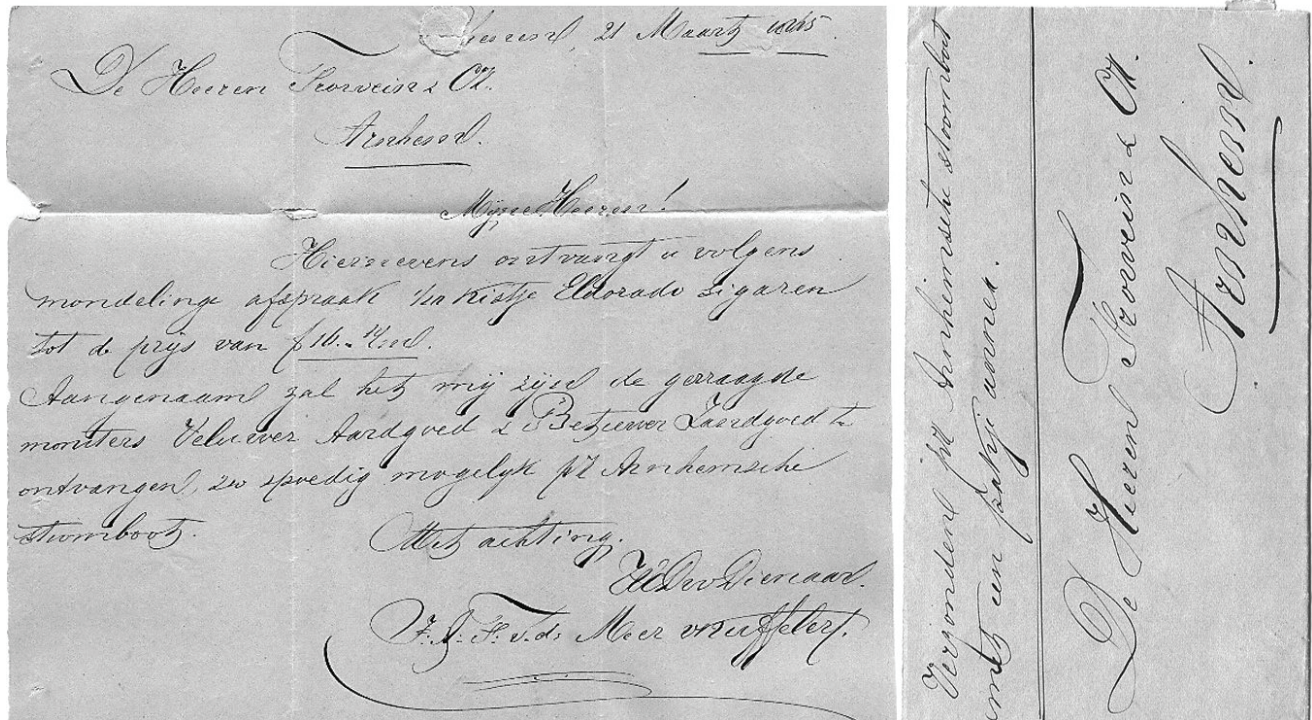 21 Maart 1865.
De Heeren Troivein & Co.
Arnhem.
Mijne Heeren!
Hiernevens ontvangt u volgens
mondelinge afspraak kistje Eldorado Sigaren
tot de prijs van
Aangenaam zal het mij zijn de gevraagde
monsters Veluwer Aardgoed & Betuwer Zandgoed te
ontvangen, zoo spoedig mogelijk pr. Arnhemsche
stoomboot.
Met achting.
UEDw Dienaar.
v.d. Meer v Kuffeler.
Verzonden pr. Arnhemsche stoomboot
met een pakje annex.
De Heeren Troivein & Co.
Arnhem.